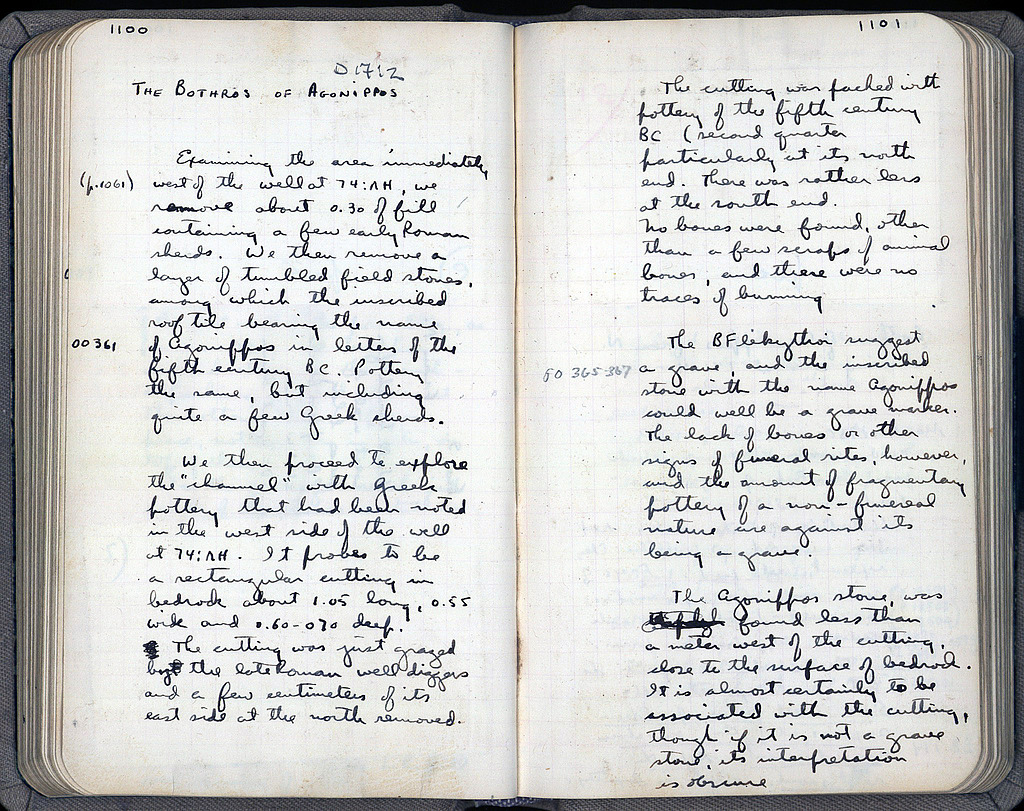 1100
D 17:2
THE BOTHROS OF AGONIPPOS
Examining the area immediately
(p.1061) west of the well at 74:ΛΗ, we
remove about 0.30 of fill
containing a few early Roman
sherds. We then remove a
layer of tumbled field stones,
among which the inscribed
roof tile bearing the name
00 361 of Agonippos in letters of the
fifth century BC. Pottery
the same, but including
quite a few Greek sherds.
We then proceed to explore
the "channel" with Greek
pottery that had been noted
in the west side of the well
at 74:ΛΗ. It proves to be
a rectangular cutting in
bedrock about 1.05 long, 0.55
wide and 0.60-070 deep.
The cutting was just grazed
by the late Roman well diggers
and a few centimeters of its
east side at the north removed.
1101
The cutting was packed with
pottery of the fifth century
BC (second quarter
particularly at its north
end. There was rather less
at the south end.
No bones were found, other
than a few scraps of animal
bones, and there were no
traces of burning
The BF lekythoi suggest
60 365-367 a grave, and the inscribed
stone with the name Agonippos
could well be a grave marker.
The lack of bones or other
signs of funeral rites, however,
and the amount of fragmentary
pottery of a non-funereal
nature are against its
being a grave.
The Agonippos stone, was
found less than
a meter west of the cutting,
close to the surface of bedrock.
It is almost certainly to be
associated with the cutting,
though if it is not a grave
stone, its interpretation
is obscure